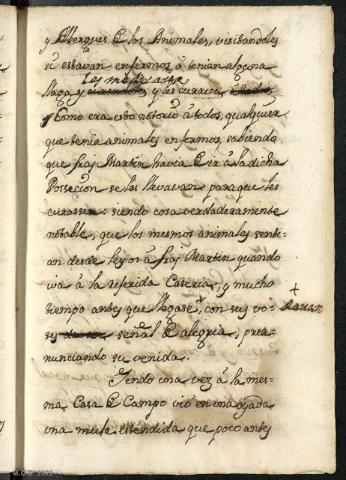 y Albergues de los Animales, visitandoles
si estavan enfermos, ò tenian alguna
les medicava
llaga y curandoles y les curava
Como era esto notorio à todos, qualquier
que tenia animales enfermos, sabiendo
que fray Martin havia de ir à la dicha
Possecion se los llevavan para que les
curasse: siendo cosa verdaderamente
notable, que los mesmos animales senti-
an desde lejos à fray Martin quando
iva à la referida Caseria, y mucho
tiempo antes que llegase, con sus vo-
ses señal de alegria, pre-
nunciando su venida.
davan
Yendo una vez à la mes-
ma Casa de Campo viò en una
una mula estendida que poco antes